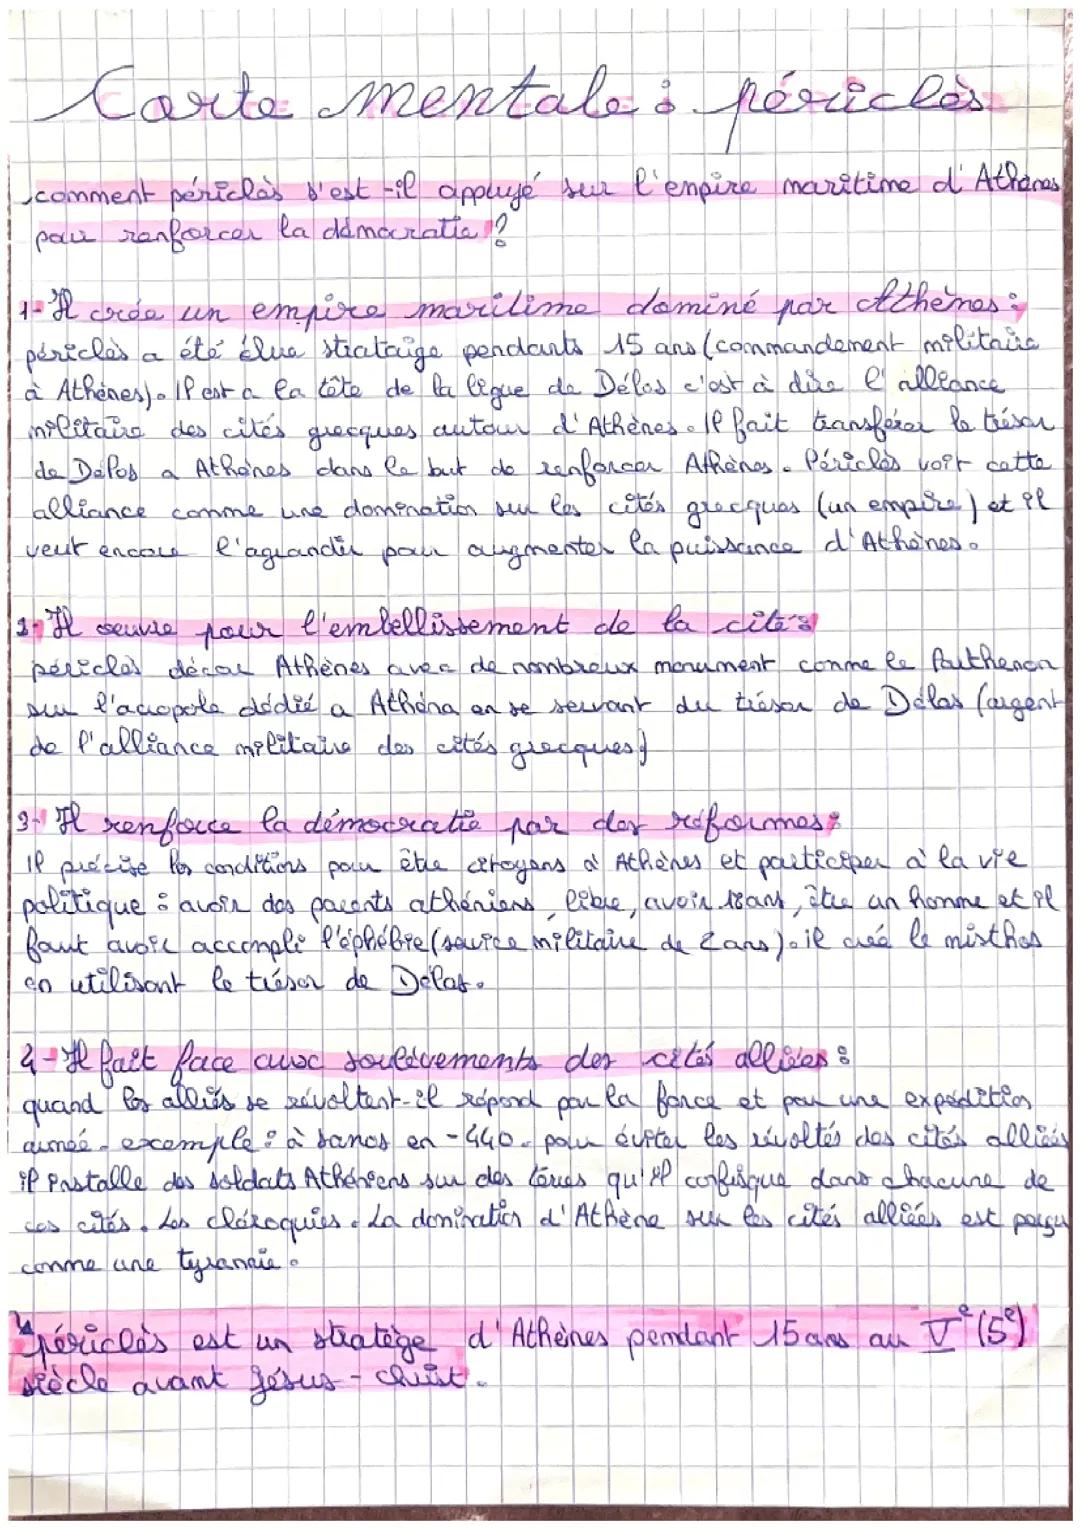 Carte mentale : périclès
comment périclès s'est-il appuyé sur l'empire maritime d'Athènes
pour renforcer la démocratie ?
1- Il crée un empire maritime dominé par Athènes :
périclès a été élue strataige pendants 15 ans (commandement militaire
à Athènes). Il est a la tête de la ligue de Délos c'est à dire l'alliance
militaire des cités grecques autour d'Athènes. Il fait transférer le trésor
de Délos a Athènes dans le but de renforcer Athènes. Périclès voit cette
alliance comme une domination sur les cités grecques (un empire) et il
veut encore l'agrandir pour augmenter la puissance d'Athènes.
2- Il oeuvre pour l'embellissement de la cité :
périclès décore Athènes avec de nombreux monument comme le Parthenon
sur l'acropole dédié a Athéna en se servant du trésor de Délos (argent
de l'alliance militaire des cités grecques)
3- Il renforce la démocratie par des réformes :
Il précise les conditions pour être citoyens à Athènes et participer à la vie
politique : avoir des parents athéniens, libre, avoir 18ans, être un homme et il
faut avoir accompli l'éphébie (service militaire de 2 ans). il créé le misthos
en utilisant le trésor de Délos.
4- Il fait face aux soulèvements des cités alliées :
quand les alliés se révoltent-il répond par la force et par une expédition
armée. exemple : à Samos en -440. pour éviter les révoltés des cités alliées
il installe des soldats Athéniens sur des terres qu'il confisque dans chacune de
ces cités. Les cléroquies. La domination d'Athène sur les cités alliées est perçu
comme une tyrannie.
périclès est un stratège d'Athènes pendant 15 ans au Vᵉ (5ᵉ)
siècle avant Jésus-christ.